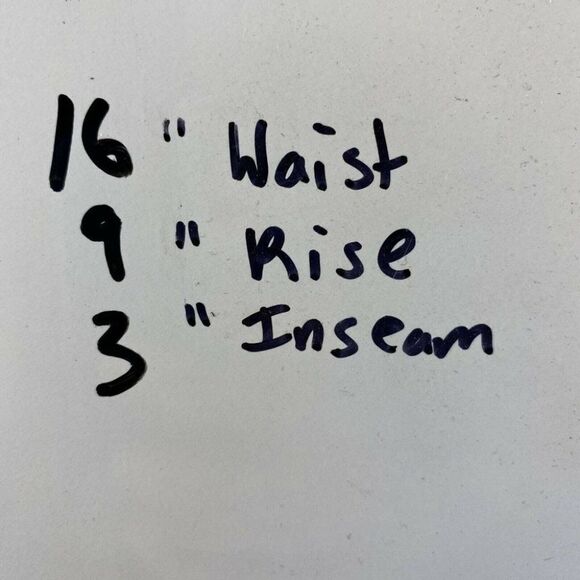 16" Waist
9" Rise
3" Inseam